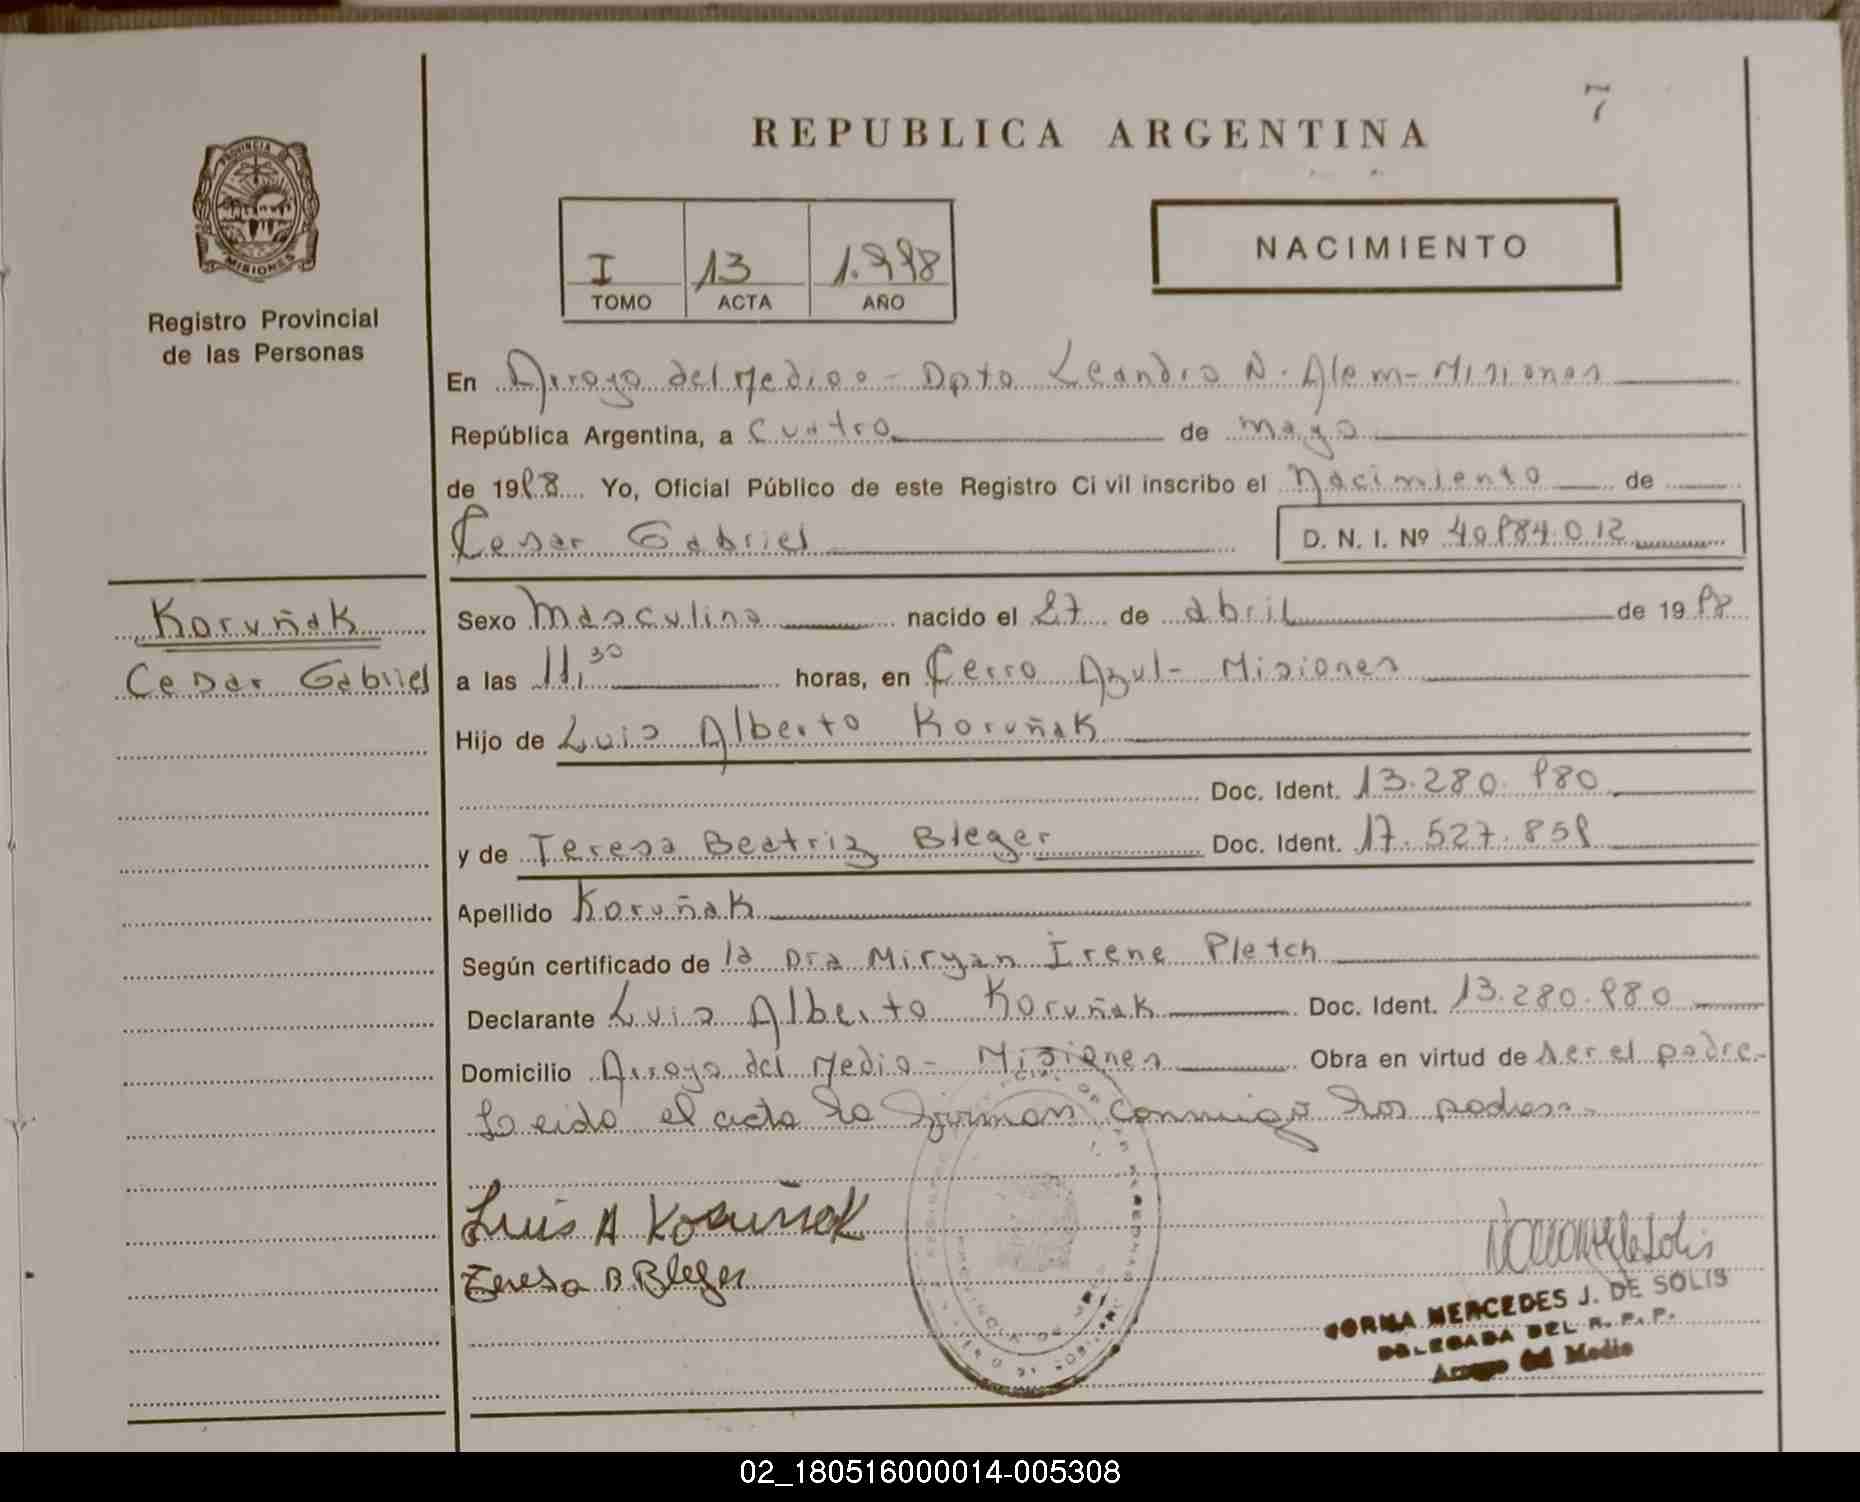 7
REPUBLICA ARGENTINA
PROVINCIA DE
MISIONES
Registro Provincial
de las Personas
I 13 1.998
TOMO ACTA AÑO
NACIMIENTO
En Arroyo del Medio - Dpto Leandro N. Alem - Misiones
República Argentina, a cuatro de mayo
de 1998 Yo, Oficial Público de este Registro Civil inscribo el Nacimiento de
Cesar Gabriel D. N. I. Nº 40984.012
Koruñak
Cesar Gabriel
Sexo Masculino nacido el 27 de abril de 1998
a las 11,30 horas, en Cerro Azul - Misiones
Hijo de Luis Alberto Koruñak
Doc. Ident. 13.280.980
y de Teresa Beatriz Bleger Doc. Ident. 17.527.859
Apellido Koruñak
Según certificado de la Dra Miryan Irene Pletch
Declarante Luis Alberto Koruñak Doc. Ident. 13.280.980
Domicilio Arroyo del Medio - Misiones Obra en virtud de ser el padre.-
Leido el acta la firman conmigo los padres.
Luis A Koruñak
Teresa B. Bleger
NORMA MERCEDES J. DE SOLIS
DELEGADA DEL R. P. P.
Arroyo del Medio
02_180516000014-005308